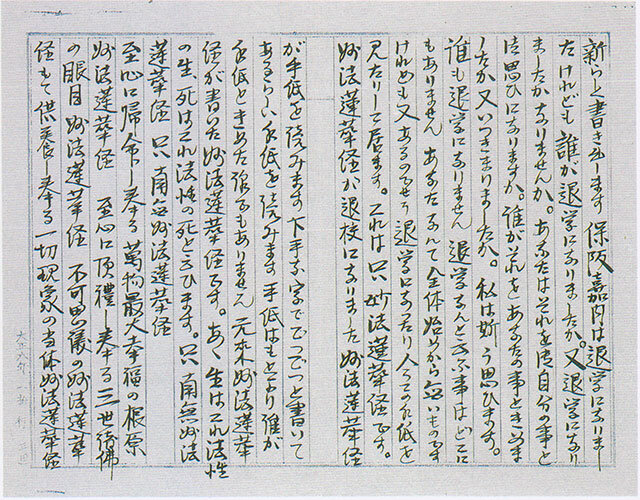 新らしく書き出します 保阪嘉内は退学になりまし
たけれども 誰が退学になりましたか。又退学になり
ましたかなりませんか。あなたはそれを御自分の事と
御思ひになりますか。誰がそれをあなたの事ときめま
したか又いつきまりましたか。私は斯う思ひます。
誰も退学になりません 退学なんと云ふ事はどこに
もありません あなたなんて全体始めから無いものです
けれども又あるのでせう 退学になったり今この手紙を
見たりして居ます。これは只妙法蓮華経です。
妙法蓮華経が退校になりました 妙法蓮華経
が手紙を読みます 下手な字でごつごつと書いて
あるらしい手紙を読みます 手紙はもとより誰が
手紙ときめた訳でもありません 元来妙法蓮華
経が書いた妙法蓮華経です。あゝ生はこれ法性
の生、死はこれ法性の死と云ひます。只南無妙法
蓮華経 只南無妙法蓮華経
至心に帰命し奉る萬物最大幸福の根原
妙法蓮華経 至心に頂禮し奉る三世諸佛
の眼目妙法蓮華経 不可思議の妙法蓮華
経もて供養し奉る一切現象の当体妙法蓮華経